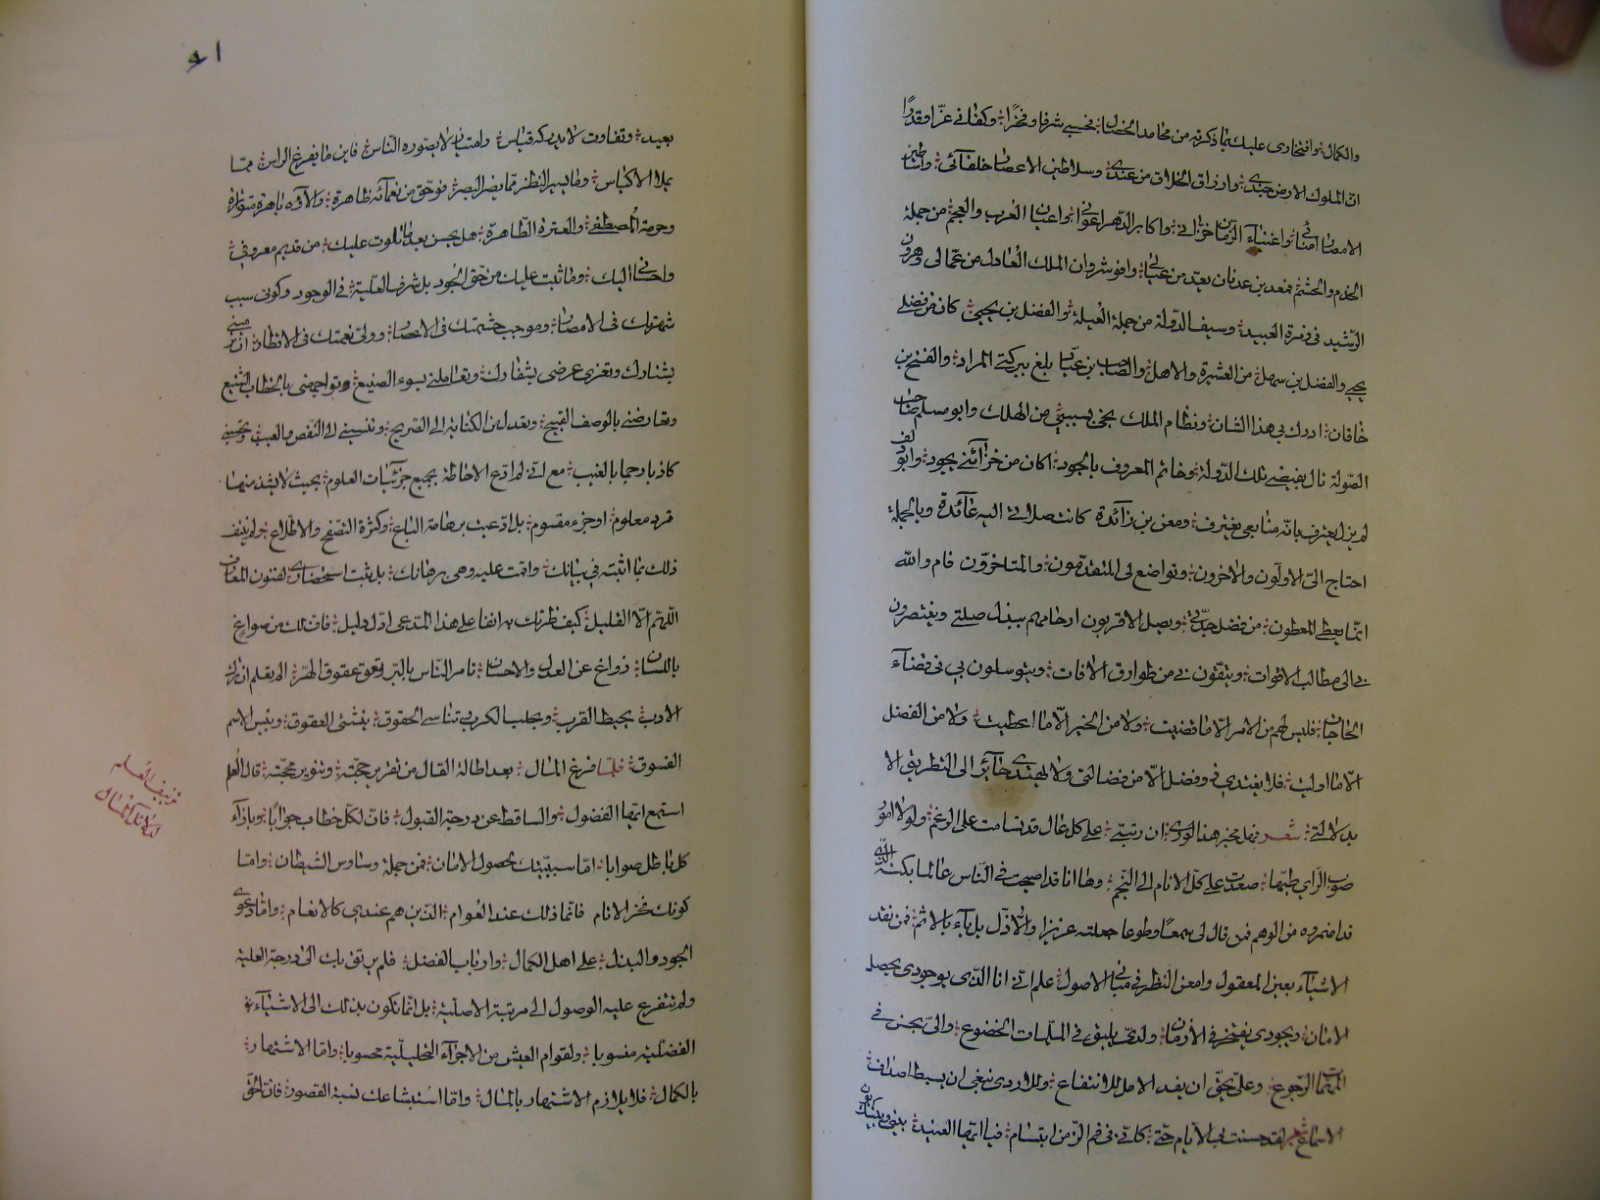 والكمال وافتخارى عليك بما ذكرته من محامد الخصال فحسبي شرفا وفخرا وكفاني عزا وقدرا
ان الملوك الارض جندى وارزاق الخلائق من عندى وسلاطين الاعصار خلفائى واساطين
الامصار امنائى واغنياء الزمان خزانى واكابر الدهر اعوانى واعيان العرب والعجم من جملة
الخدم والحشم فمعد بن عدنان يعد من وانوشروان الملك العادل من عمالى وهرون
الرشيد فى زمرة العبيد وسيف الدولة من جملة والفضل بن يحيى كان من فضلى
يحيى والفضل بن سهل من العشيرة والاهل والصاحب بن عباد بلغ ببركتى المراد والفتح بن
خاقان ادرك بى هذا الشان ونظام الملك نجى بسببى من الهلاك وابو مسلم صاحب
الصولة نال بفيضى تلك الدولة وحاتم المعروف بالجود كان من خزائنى يجود وابو دلف
لم يزل يعترف بانه من يغترف ومعن بن زائدة كانت صلاتى اليه عائدة وبالجملة
احتاج الى الاولون والاخرون وتواضع لى المتقدمون والمتاخرون فام والله
انما يعطى المعطون من فضل ويصل الاقربون ارحامهم ببذل صلتى ويفتقرون
بى الى مطالب الاقوات ويتقون بى من طوارق الافات ويتوسلون بى فى قضاء
الحاجات فليس لهم من الامر الا ما قضيت ولا من الخير الا ما اعطيت ولا من الفضل
الا ما اوليت فلا يغتدى ذو فضل الا من فضالتى ولا يهتدى حائر الى الطريق الا
بدلالتى شعر فهل مخبر هذا الورى ان رتبتى على كل عال قد تسامت على الرغم ولولا امور
صوب الراى طيها صعدت على كل الانام الى النجم وها انا قد اصبحت فى الناس عالما بكنه الذى
قد اضمروه من الوهم فمن قال لى سمعا وطوعا جعلته عزيزا والا ذل بل باء بالاثم فمن نقد
الاشياء بعين المعقول وامعن النظر فى مبانى الاصول علم انى انا الذى بوجودى يحصل
الامان وبجودى يفتخر فى الازمان ولدى يليق فى الملمات الخضوع والى يحسن فى
المهمات الرجوع وعلى يحق ان يفد الامل للانتفاع ينبغى ان يبسط
الاسماع شعر لقد حسنت بى الايام حتى كانى فى فم الزمن ابتسام فيا ايها العنيد بينى وبينك بون
٩١
بعيد وتفاوت لا يدركه قياس وامتياز لا يتصوره الناس فاين ما يفرغ الراس مما
يملا الاكياس وما يسر النظر مما يضر البصر فوحق من نعمائه ظاهرة والاؤه باهرة متواترة
وحرمة المصطفى والعترة الطاهرة هل يحسن بعد ما تلوت عليك من قديم معروفى
واحسانى اليك وما ثبت عليك من حق الجود بل شرف العلية فى الوجود وكونى سبب
شهرتك فى الامصار وموجب حشمتك فى الاعصار وولى نعمتك فى الاقطار ان ترمينى
بشنارك وتفرى عرضى بشفارك وتعاملنى بسوء الصنيع وتواجهنى بالخطاب الشنيع
وتعارضنى بالوصف القبيح وتعدل من الكناية الى الصريح وتنسبنى الى النقص والعيب وتحسبنى
كاذبا رجما بالغيب مع انى لم ادع الاحاطة بجميع جزئيات العلوم بحيث لا يشذ منها
فرد معلوم او جزء مقسوم بل ادعيت براعة الباع وكثرة التصفح والاطلاع ولم ينف
ذلك ما اثبته فى بيانك واقمت عليه وهى برهانك بل ثبت استحضارى لفنون المعارف
اللهم الا القليل كيف ظرتك برانفا على هذا المدعى ادل دليل فانك من صواغ
باللسان زواغ عن العدل والاحسان تامر الناس بالبر وتعق عقوق الهر الم تعلم ان ترك
الادب يحبط القرب ويجلب الكرب وتناسى الحقوق ينشئ العقوق وبئس الاسم
الفسوق فلما فرغ المال بعد اطالة القال من تقرير حجته وتنوير محجته قال العلم
استمع ايها الفضول والساقط عن درجة القبول فان لكل خطاب جوابا وبازاء
كل باطل صوابا اما سببيتك لحصول الامان فمن جملة وساوس الشيطان واما
كونك فخر الانام فانما ذلك عند العوام الذين هم عندى كالانعام واما دعوى
الجود والبذل على اهل الكمال وارباب الفضل فلم يرتق بك الى درجة العلية
ولم يتفرع عليه الوصول الى مرتبة الاصلية بل انما تكون بذلك الى الاشياء
الفضلية منسوبا ولقوام العيش من الاجزاء التحليلية محسوبا واما الاشتهار
بالكمال فلا يلازم الاشتهار بالمال واما استبشاعك نسبة القصور فان الحق
تزييف العلم
لدلائل المال